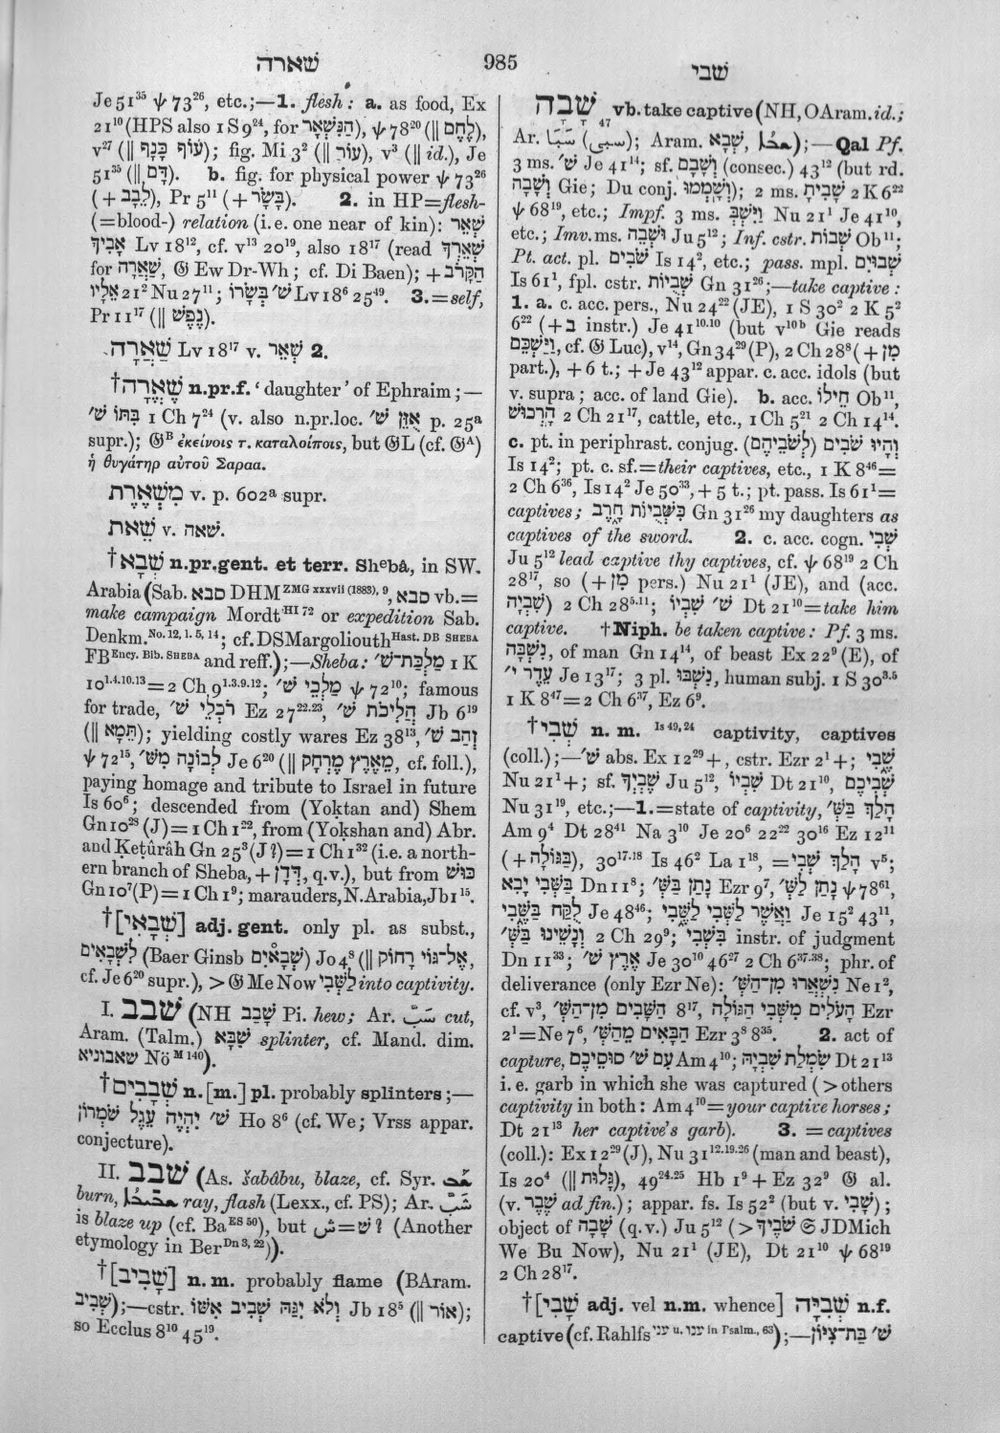 שארה
985
שבי
Je 51³⁵ ψ 73²⁶, etc.;—1. flesh: a. as food, Ex
21¹⁰ (HPS also 1 S 9²⁴, for הַנִּשְׁאָר), ψ 78²⁰ (|| לֶחֶם),
v²⁷ (|| עוֹף כָּנָף); fig. Mi 3² (|| עוֹר), v³ (|| id.), Je
51³⁵ (|| דָּם). b. fig. for physical power ψ 73²⁶
(+ לֵבָב), Pr 5¹¹ (+ בָּשָׂר). 2. in HP=flesh-
(=blood-) relation (i.e. one near of kin): שְׁאֵר
אָבִיךָ Lv 18¹², cf. v¹³ 20¹⁹, also 18¹⁷ (read שְׁאֵרְךָ
for שַׁאֲרָה, 𝔊 Ew Dr-Wh; cf. Di Baen); + הַקָּרֹב
אֵלָיו 21² Nu 27¹¹; שׁ׳ בְּשָׂרוֹ Lv 18⁶ 25⁴⁹. 3.=self,
Pr 11¹⁷ (|| נֶפֶשׁ).
שַׁאֲרָה Lv 18¹⁷ v. שְׁאֵר 2.
†שֶׁאֱרָה n.pr.f. ‘daughter’ of Ephraim;—
בִּתּוֹ שׁ׳ 1 Ch 7²⁴ (v. also n.pr.loc. אֻזֵּן שׁ׳ p. 25ᵃ
supr.); 𝔊ᴮ ἐκείνοις τ. καταλοίποις, but 𝔊L (cf. 𝔊ᴬ)
ἡ θυγάτηρ αὐτοῦ Σαραα.
מִשְׁאֶרֶת v. p. 602ᵃ supr.
שְׁאֵת v. שׁאה.
†שְׁבָא n.pr.gent. et terr. Shᵉbâ, in SW.
Arabia (Sab. סבא DHM ᶻᴹᴳ ˣˣˣᵛⁱⁱ ⁽¹⁸⁸³⁾, ⁹, סבא vb.=
make campaign Mordt ᴴᴵ ⁷² or expedition Sab.
Denkm. ᴺᵒ· ¹², ¹· ⁵, ¹⁴; cf. DSMargoliouth Hast. DB SHEBA
FB Ency. Bib. SHEBA and reff.);—Sheba: מַלְכַּת־שׁ׳ 1 K
10¹·⁴·¹⁰·¹³=2 Ch 9¹·³·⁹·¹²; מַלְכֵי שׁ׳ ψ 72¹⁰; famous
for trade, רֹכְלֵי שׁ׳ Ez 27²²·²³, הֲלִיכֹת שׁ׳ Jb 6¹⁹
(|| תֵּמָא); yielding costly wares Ez 38¹³, זְהַב שׁ׳
ψ 72¹⁵, לְבוֹנָה מִשּׁ׳ Je 6²⁰ (|| מֵאֶרֶץ מֶרְחָק, cf. foll.),
paying homage and tribute to Israel in future
Is 60⁶; descended from (Yoḳtan and) Shem
Gn 10²⁸ (J)=1 Ch 1²², from (Yoḳshan and) Abr.
and Ḳeṭûrâh Gn 25³ (J?)=1 Ch 1³² (i.e. a north-
ern branch of Sheba, + דְּדָן, q.v.), but from כּוּשׁ
Gn 10⁷ (P)=1 Ch 1⁹; marauders, N. Arabia, Jb 1¹⁵.
†[שְׁבָאִי] adj.gent. only pl. as subst.,
לִשְׁבָאיִם (Baer Ginsb שְׁבָאיִם) Jo 4⁸ (|| אֶל־גּוֹי רָחוֹק,
cf. Je 6²⁰ supr.), > 𝔊 Me Now לַשְּׁבִי into captivity.
I. שׁבב (NH שָׁבַב Pi. hew; Ar. سَبَّ cut,
Aram. (Talm.) שִׁבָּא splinter, cf. Mand. dim.
שאבוניא Nö ᴹ ¹⁴⁰).
†שְׁבָבִים n.[m.] pl. probably splinters;—
שׁ׳ יִהְיֶה עֵגֶל שֹׁמְרוֹן Ho 8⁶ (cf. We; Vrss appar.
conjecture).
II. שׁבב (As. šabâbu, blaze, cf. Syr.
burn, ray, flash (Lexx., cf. PS); Ar. شَبَّ
is blaze up (cf. Ba ᴱˢ ⁵⁰), but ش=שׁ? (Another
etymology in Ber ᴰⁿ ³, ²²)).
†[שָׁבִיב] n.m. probably flame (BAram.
שְׁבִיב);—cstr. וְלֹא יִגַּהּ שְׁבִיב אִשּׁוֹ Jb 18⁵ (|| אוֹר);
so Ecclus 8¹⁰ 45¹⁹.
שָׁבָה ₄₇ vb. take captive (NH, OAram. id.;
Ar. سَبَا (سبى); Aram. שְׁבָא, );—Qal Pf.
3 ms. שׁ׳ Je 41¹⁴; sf. וְשָׁבָם (consec.) 43¹² (but rd.
וְשָׁבָה Gie; Du conj. וְשָׁמְמוּ); 2 ms. שָׁבִיתָ 2 K 6²²
ψ 68¹⁹, etc.; Impf. 3 ms. וַיִּשְׁבְּ Nu 21¹ Je 41¹⁰,
etc.; Imv. ms. וּשְׁבֵה Ju 5¹²; Inf. cstr. שְׁבוֹת Ob¹¹;
Pt. act. pl. שֹׁבִים Is 14², etc.; pass. mpl. שְׁבוּיִם
Is 61¹, fpl. cstr. שְׁבֻיוֹת Gn 31²⁶;—take captive:
1. a. c. acc. pers., Nu 24²² (JE), 1 S 30² 2 K 5²
6²² (+ ב instr.) Je 41¹⁰·¹⁰ (but v¹⁰ᵇ Gie reads
וַיַּשְׁכֵּם, cf. 𝔊 Luc), v¹⁴, Gn 34²⁹ (P), 2 Ch 28⁸ (+ מִן
part.), + 6 t.; + Je 43¹² appar. c. acc. idols (but
v. supra; acc. of land Gie). b. acc. חֵילוֹ Ob¹¹,
הָרְכוּשׁ 2 Ch 21¹⁷, cattle, etc., 1 Ch 5²¹ 2 Ch 14¹⁴.
c. pt. in periphrast. conjug. וְהָיוּ שֹׁבִים (לְשֹׁבֵיהֶם)
Is 14²; pt. c. sf.=their captives, etc., 1 K 8⁴⁶=
2 Ch 6³⁶, Is 14² Je 50³³, + 5 t.; pt. pass. Is 61¹=
captives; כִּשְׁבֻיוֹת חָרֶב Gn 31²⁶ my daughters as
captives of the sword. 2. c. acc. cogn. שְׁבִי׳
Ju 5¹² lead captive thy captives, cf. ψ 68¹⁹ 2 Ch
28¹⁷, so (+ מִן pers.) Nu 21¹ (JE), and (acc.
שִׁבְיָה) 2 Ch 28⁵·¹¹; שׁ׳ שִׁבְיוֹ Dt 21¹⁰=take him
captive. †Niph. be taken captive: Pf. 3 ms.
נִשְׁבָּה, of man Gn 14¹⁴, of beast Ex 22⁹ (E), of
עֵדֶר י׳ Je 13¹⁷; 3 pl. נִשְׁבּוּ, human subj. 1 S 30³·⁵
1 K 8⁴⁷=2 Ch 6³⁷, Ez 6⁹.
†שְׁבִי n. m. ᴵˢ ⁴⁹, ²⁴ captivity, captives
(coll.);—שׁ׳ abs. Ex 12²⁹+, cstr. Ezr 2¹+; שֶׁבִי
Nu 21¹+; sf. שֶׁבְיְךָ Ju 5¹², שִׁבְיוֹ Dt 21¹⁰, שֶׁבְיְכֶם
Nu 31¹⁹, etc.;—1.=state of captivity, הָלַךְ בַּשּׁ׳
Am 9⁴ Dt 28⁴¹ Na 3¹⁰ Je 20⁶ 22²² 30¹⁶ Ez 12¹¹
(+ בַּגּוֹלָה), 30¹⁷·¹⁸ Is 46² La 1¹⁸, =הָלַךְ שְׁבִי v⁵;
בַּשְּׁבִי יָבֹא Dn 11⁸; נָתַן בַּשּׁ׳ Ezr 9⁷, נָתַן לַשּׁ׳ ψ 78⁶¹,
לֻקַּח בַּשֶּׁבִי Je 48⁴⁶; וַאֲשֶׁר לַשְּׁבִי לַשֶּׁבִי Je 15² 43¹¹,
וְנָשֵׁינוּ בַּשּׁ׳ 2 Ch 29⁹; בִּשְׁבִי instr. of judgment
Dn 11³³; אֶרֶץ שׁ׳ Je 30¹⁰ 46²⁷ 2 Ch 6³⁷·³⁸; phr. of
deliverance (only Ezr Ne): נִשְׁאֲרוּ מִן־הַשּׁ׳ Ne 1²,
cf. v³, הַשָּׁבִים מִן־הַשּׁ׳ 8¹⁷, הָעֹלִים מִשְּׁבִי הַגּוֹלָה Ezr
2¹=Ne 7⁶, הַבָּאִים מֵהַשּׁ׳ Ezr 3⁸ 8³⁵. 2. act of
capture, עִם שׁ׳ סוּסֵיכֶם Am 4¹⁰; שִׂמְלַת שִׁבְיָהּ Dt 21¹³
i. e. garb in which she was captured (> others
captivity in both: Am 4¹⁰=your captive horses;
Dt 21¹³ her captive's garb). 3. =captives
(coll.): Ex 12²⁹ (J), Nu 31¹²·¹⁹·²⁶ (man and beast),
Is 20⁴ (|| גָּלוּת), 49²⁴·²⁵ Hb 1⁹ + Ez 32⁹ 𝔊 al.
(v. שֶׁבֶר ad fin.); appar. fs. Is 52² (but v. שָׁבִי);
object of שָׁבָה (q.v.) Ju 5¹² (> שֹׁבֶיךָ 𝔖 JDMich
We Bu Now), Nu 21¹ (JE), Dt 21¹⁰ ψ 68¹⁹
2 Ch 28¹⁷.
†[שָׁבִי adj. vel n.m. whence] שְׁבִיָּה n.f.
captive (cf. Rahlfs עני u. ענו in Psalm., 63);—שׁ׳ בַּת־צִיּוֹן